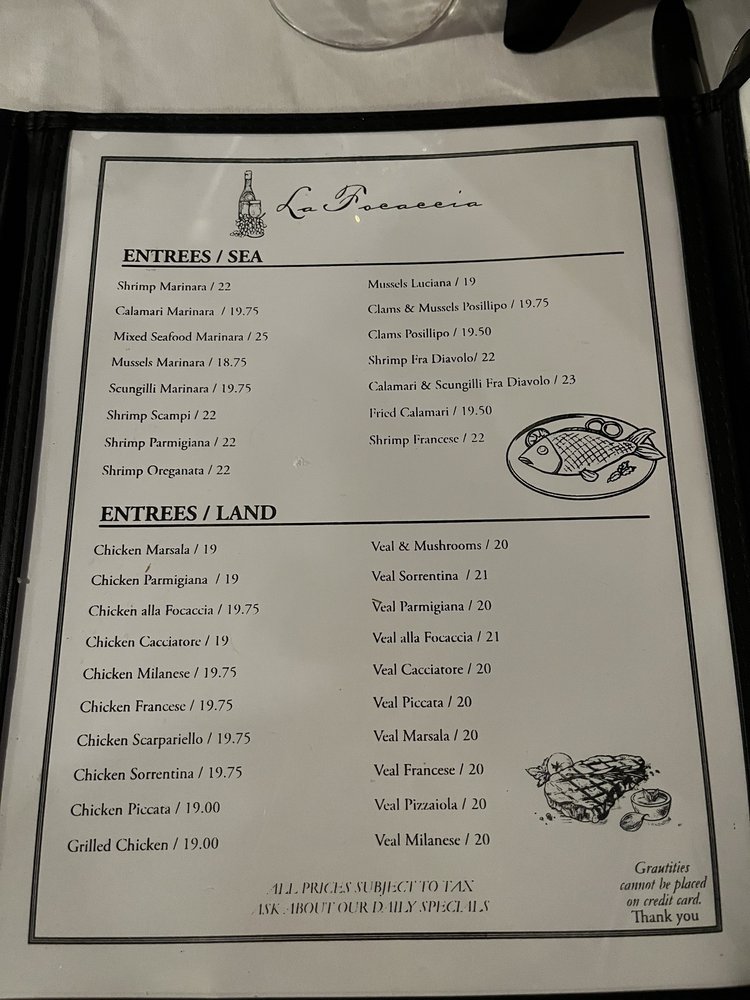 La Focaccia
ENTREES / SEA
Shrimp Marinara / 22
Calamari Marinara / 19.75
Mixed Seafood Marinara / 25
Mussels Marinara / 18.75
Scungilli Marinara / 19.75
Shrimp Scampi / 22
Shrimp Parmigiana / 22
Shrimp Oreganata / 22
Mussels Luciana / 19
Clams & Mussels Posillipo / 19.75
Clams Posillipo / 19.50
Shrimp Fra Diavolo/ 22
Calamari & Scungilli Fra Diavolo / 23
Fried Calamari / 19.50
Shrimp Francese / 22
ENTREES / LAND
Chicken Marsala / 19
Chicken Parmigiana / 19
Chicken alla Focaccia / 19.75
Chicken Cacciatore / 19
Chicken Milanese / 19.75
Chicken Francese / 19.75
Chicken Scarpariello / 19.75
Chicken Sorrentina / 19.75
Chicken Piccata / 19.00
Grilled Chicken / 19.00
Veal & Mushrooms / 20
Veal Sorrentina / 21
Veal Parmigiana / 20
Veal alla Focaccia / 21
Veal Cacciatore / 20
Veal Piccata / 20
Veal Marsala / 20
Veal Francese / 20
Veal Pizzaiola / 20
Veal Milanese / 20
ALL PRICES SUBJECT TO TAX
ASK ABOUT OUR DAILY SPECIALS
Grautities
cannot be placed
on credit card.
Thank you